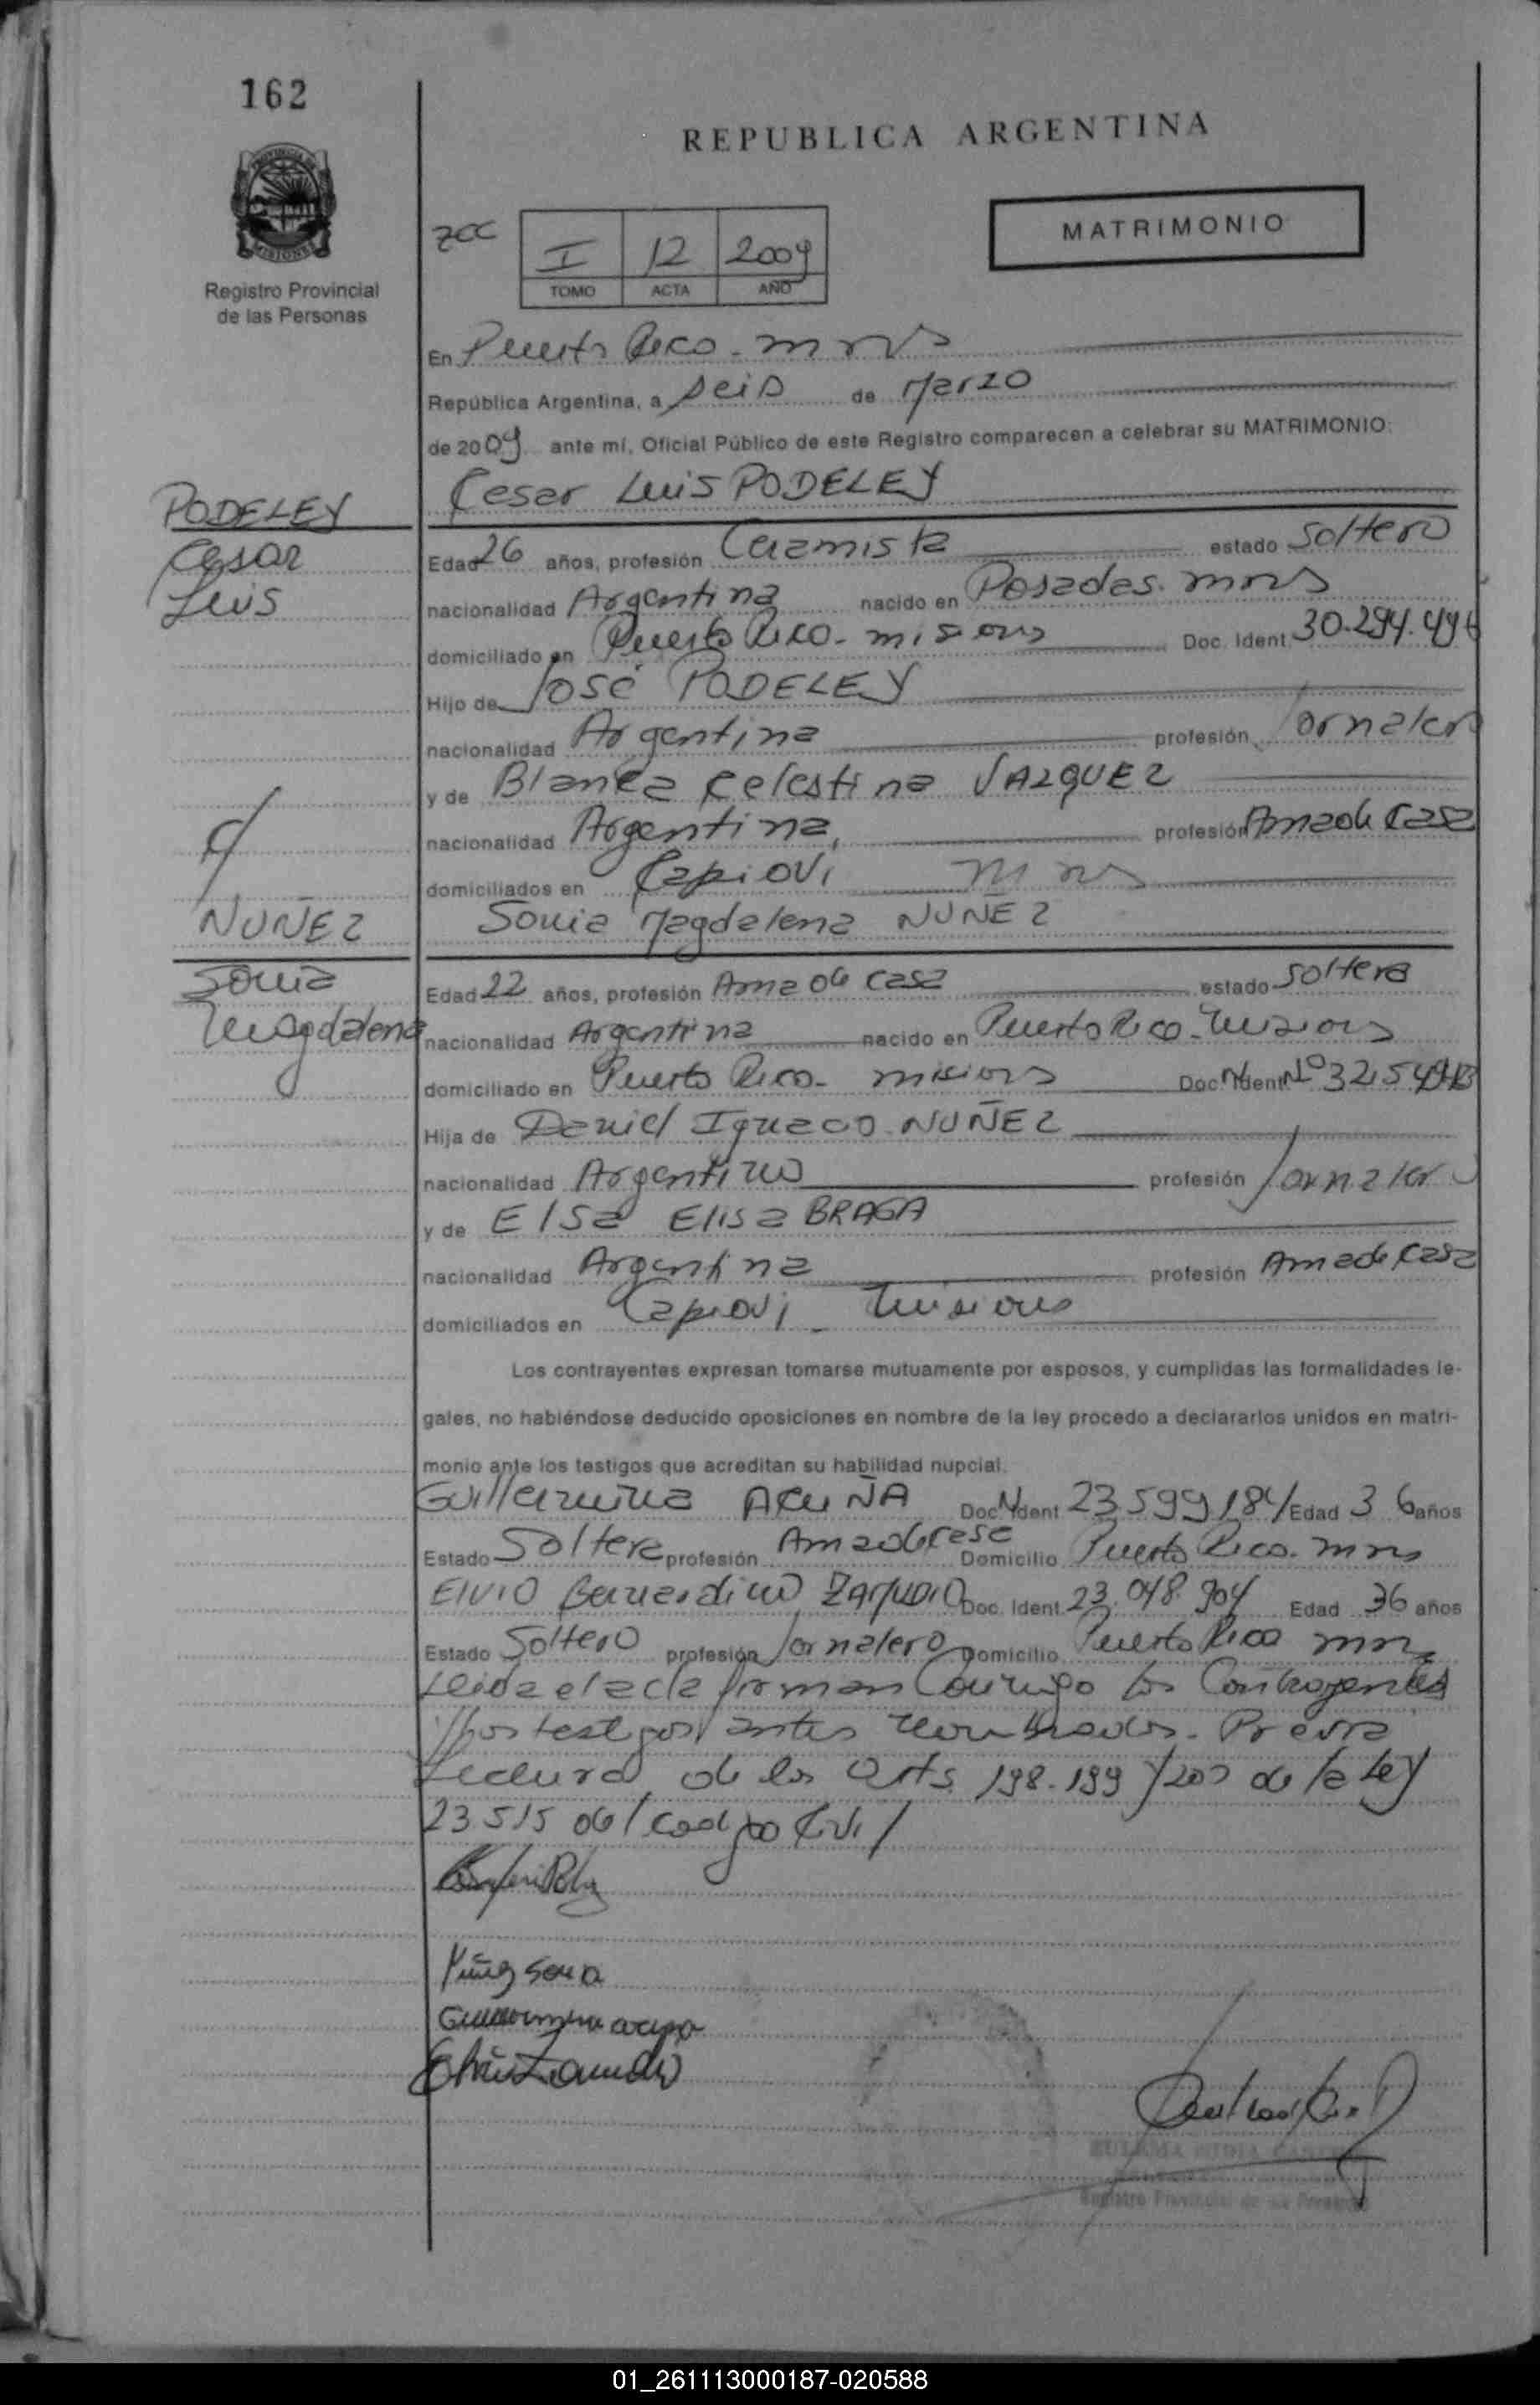 162
REPUBLICA ARGENTINA
MATRIMONIO
Registro Provincial
de las Personas
I 12 2009
TOMO ACTA AÑO
En Puerto Rico - mns
República Argentina, a seis de Marzo
de 2009 ante mí, Oficial Público de este Registro comparecen a celebrar su MATRIMONIO:
PODELEY
Cesar
Luis
Cesar Luis PODELEY
Edad 26 años, profesión Ceramista estado Soltero
nacionalidad Argentina nacido en Posadas. mns
domiciliado en Puerto Rico - misiones Doc. Ident. 30.294.496
Hijo de José PODELEY
nacionalidad Argentina profesión Jornalero
y de Blanca Celestina VAZQUEZ
nacionalidad Argentina, profesión Ama de Casa
domiciliados en Capiovi mns
c/
NUÑEZ
Sonia
Magdalena
Sonia Magdalena NUÑEZ
Edad 22 años, profesión Ama de Casa estado Soltera
nacionalidad Argentina nacido en Puerto Rico - Misiones
domiciliado en Puerto Rico - misiones Doc. Ident. Nº
Hija de Daniel Ignacio NUÑEZ
nacionalidad Argentino profesión Jornalero
y de Elsa Elisa BRAGA
nacionalidad Argentina profesión Ama de Casa
domiciliados en Capiovi - Misiones
Los contrayentes expresan tomarse mutuamente por esposos, y cumplidas las formalidades le-
gales, no habiéndose deducido oposiciones en nombre de la ley procedo a declararlos unidos en matri-
monio ante los testigos que acreditan su habilidad nupcial.
Guillermina ACUÑA Doc. Ident 23.599.184 Edad 36 años
Estado Soltera profesión Ama de Casa Domicilio Puerto Rico. mns
Elvio Bernardino Doc. Ident. 23.048.904 Edad 36 años
Estado Soltero profesión Jornalero Domicilio Puerto Rico mns
Leida el acta firman Conmigo los Contrayentes
y los testigos antes nombrados. Previa
Lectura de los Arts 198.199 y 200 de la Ley
23.515 del Codigo Civil
Nuñez Sonia
Guillermina acuña
Registro Provincial de las Personas
01_261113000187-020588